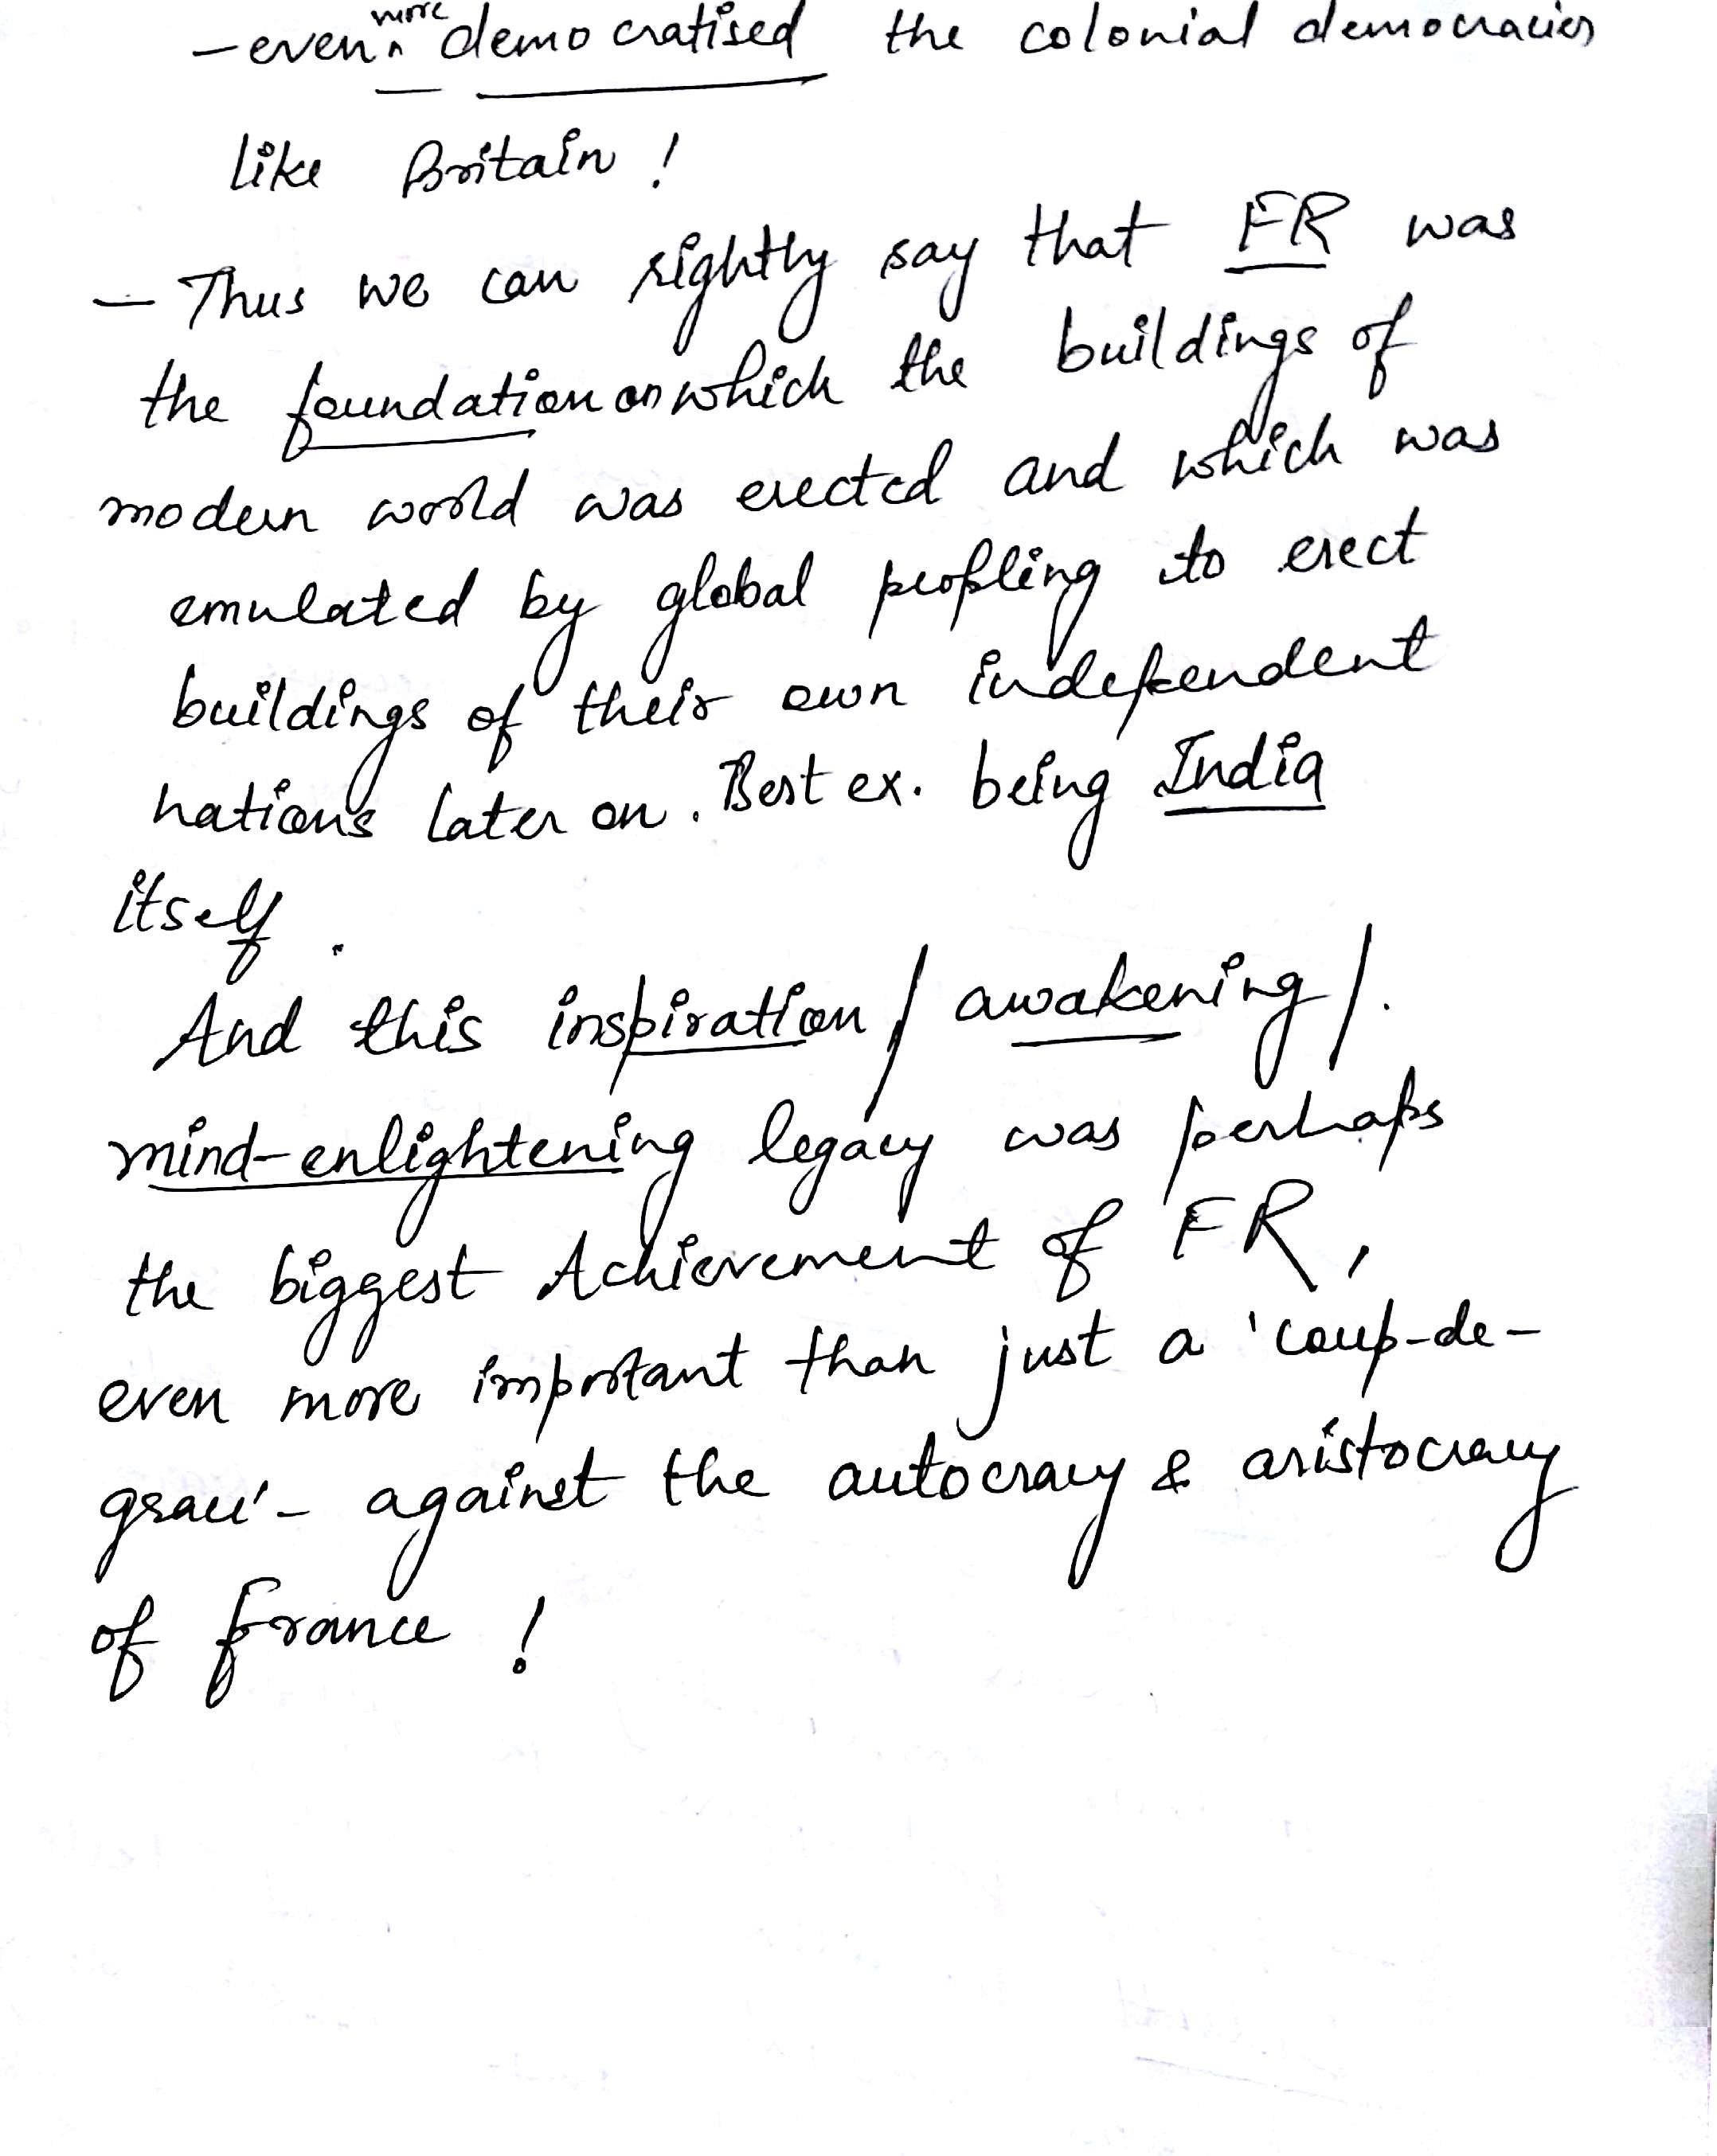 - even more democratised the colonial democracies
like Britain!
- Thus we can rightly say that FR was
the foundation on which the buildings of
modern world was erected and which was
emulated by global peopling to erect
buildings of their own independent
nations later on. Best ex. being India
itself.
And this inspiration / awakening /
mind-enlightening legacy was perhaps
the biggest Achievement of FR,
even more important than just a 'coup-de-
grace' - against the autocracy & aristocracy
of france!